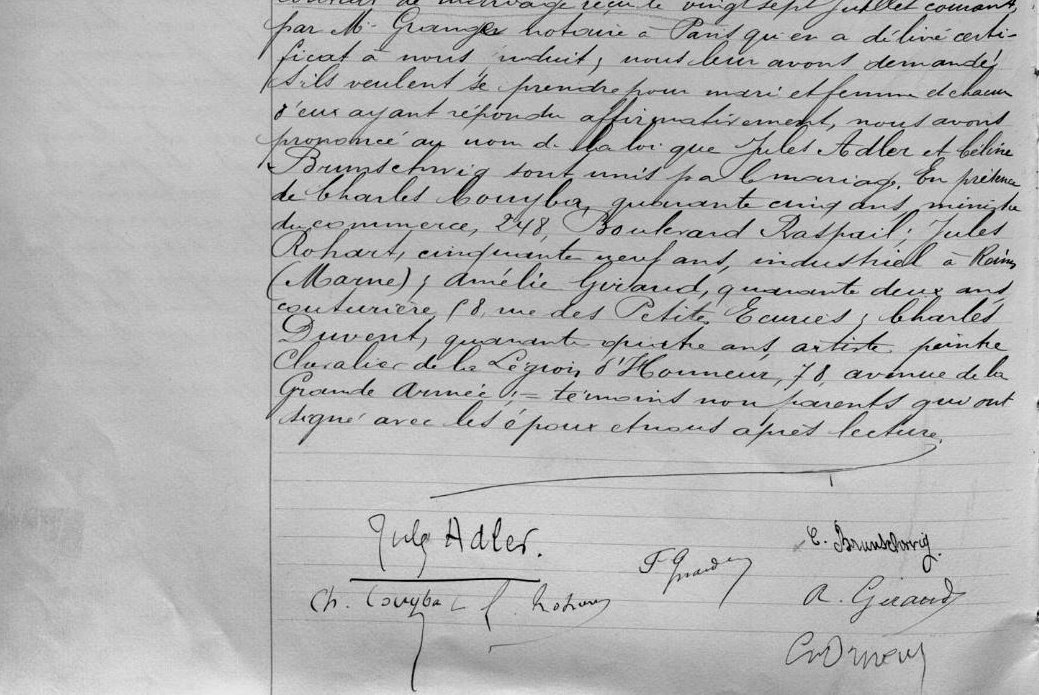 contrat de mariage reçu le vingt sept juillet courant
par Me Granger notaire à Paris qui en a délivré certi-
ficat à nous produit; nous leur avons demandé
s'ils veulent se prendre pour mari et femme et chacun
d'eux ayant répondu affirmativement, nous avons
prononcé au nom de la loi que Jules Adler et Céline
Brunschwig sont unis par le mariage. En présence
de Charles Couyba, quarante cinq ans, ministre
du commerce, 248, Boulevard Raspail; Jules
Rohart, cinquante neuf ans, industriel à Reims
(Marne); Amélie Giraud, quarante deux ans
couturière, 58, rue des Petites Ecuries; Charles
Duvent, quarante quatre ans, artiste peintre
Chevalier de la Légion d'Honneur, 78, avenue de la
Grande Armée;= témoins non parents qui ont
signé avec les époux et nous après lecture.
Jules Adler.
C. Brunschwig.
Ch. Couyba
A. Giraud